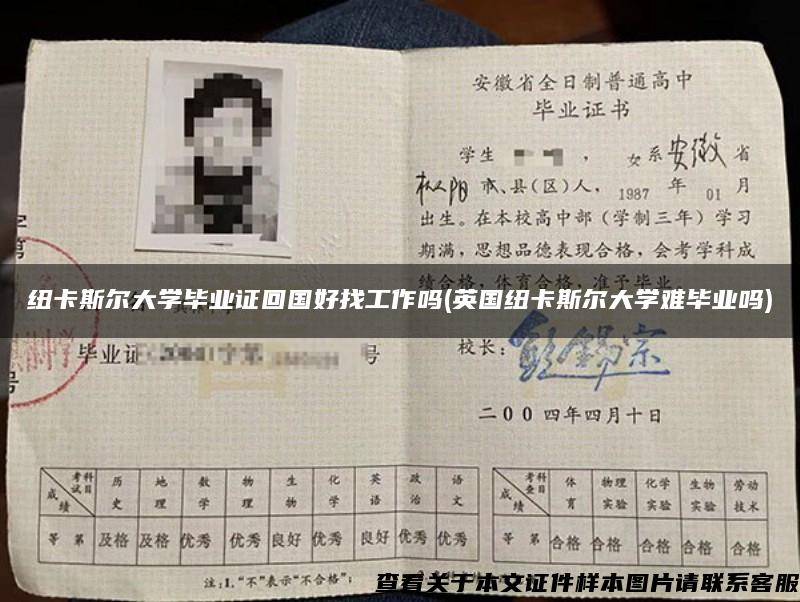 安徽省全日制普通高中
毕业证书
学生 ， 女系安徽省
枞阳市、县(区)人，1987年01月
出生。在本校高中部（学制三年）学习
期满，思想品德表现合格，会考学科成
绩合格，体育合格，准予毕业
纽卡斯尔大学毕业证回国好找工作吗(英国纽卡斯尔大学难毕业吗)
毕业证 字第 号
校长：
二00四年四月十日
成绩 考试科目 历史 地理 数学 物理 生物 化学 英语 政治 语文
等第 及格 及格 优秀 优秀 良好 优秀 良好 优秀 优秀
成绩 考查科目 体育 物理实验 化学实验 生物实验 劳动技术
等第 合格 合格 合格 合格 合格
注:1."不"表示"不合格"；
查看关于本文证件样本图片请联系客服